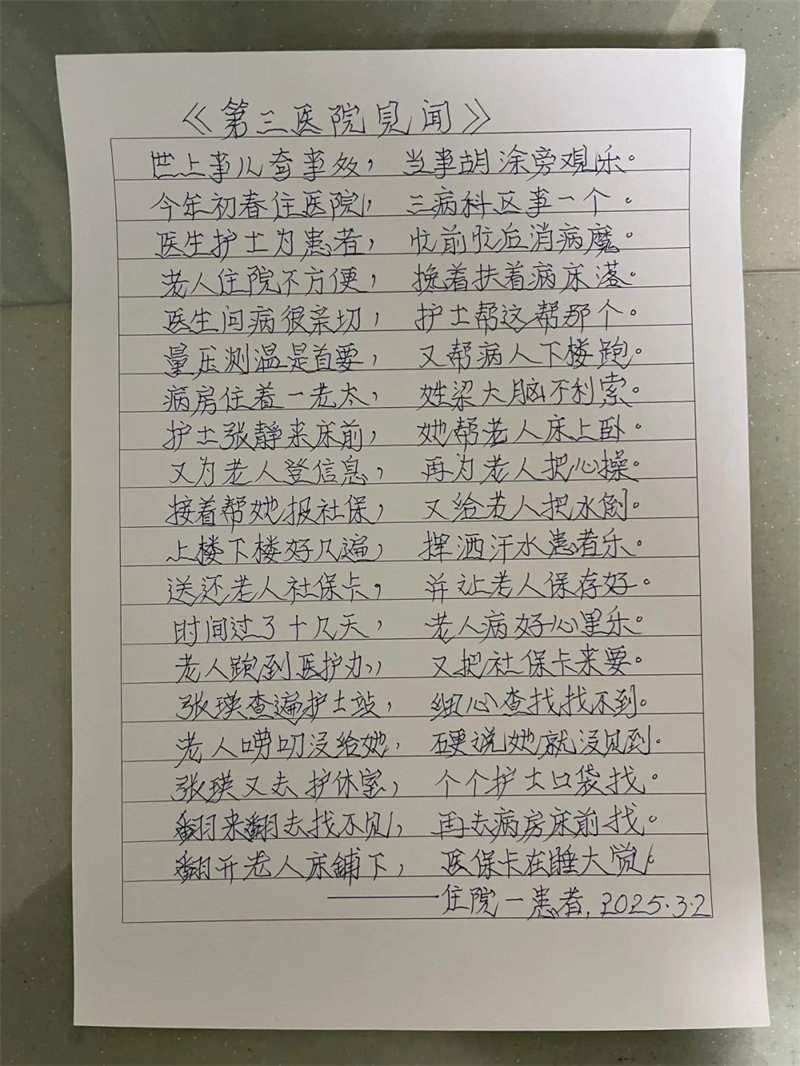 《第三医院见闻》
世上事儿奇事多， 当事胡涂旁观乐。
今年初春住医院， 三病科区事一个。
医生护士为患者， 忙前忙后消病魔。
老人住院不方便， 搀着扶着病床落。
医生问病很亲切， 护士帮这帮那个。
量压测温是首要， 又帮病人下楼跑。
病房住着一老太， 姓梁大脑不利索。
护士张静来床前， 她帮老人床上卧。
又为老人登信息， 再为老人把心操。
接着帮她报社保， 又给老人把水倒。
上楼下楼好几遍， 挥洒汗水患者乐。
送还老人社保卡， 并让老人保存好。
时间过了十几天， 老人病好心里乐。
老人跑到医护办， 又把社保卡来要。
张瑛查遍护士站， 细心查找找不到。
老人唠叨没给她， 硬说她就没见到。
张瑛又去护休室， 个个护士口袋找。
翻来翻去找不见， 再去病房床前找。
翻开老人床铺下， 医保卡在睡大觉。
——住院一患者，2025.3.2